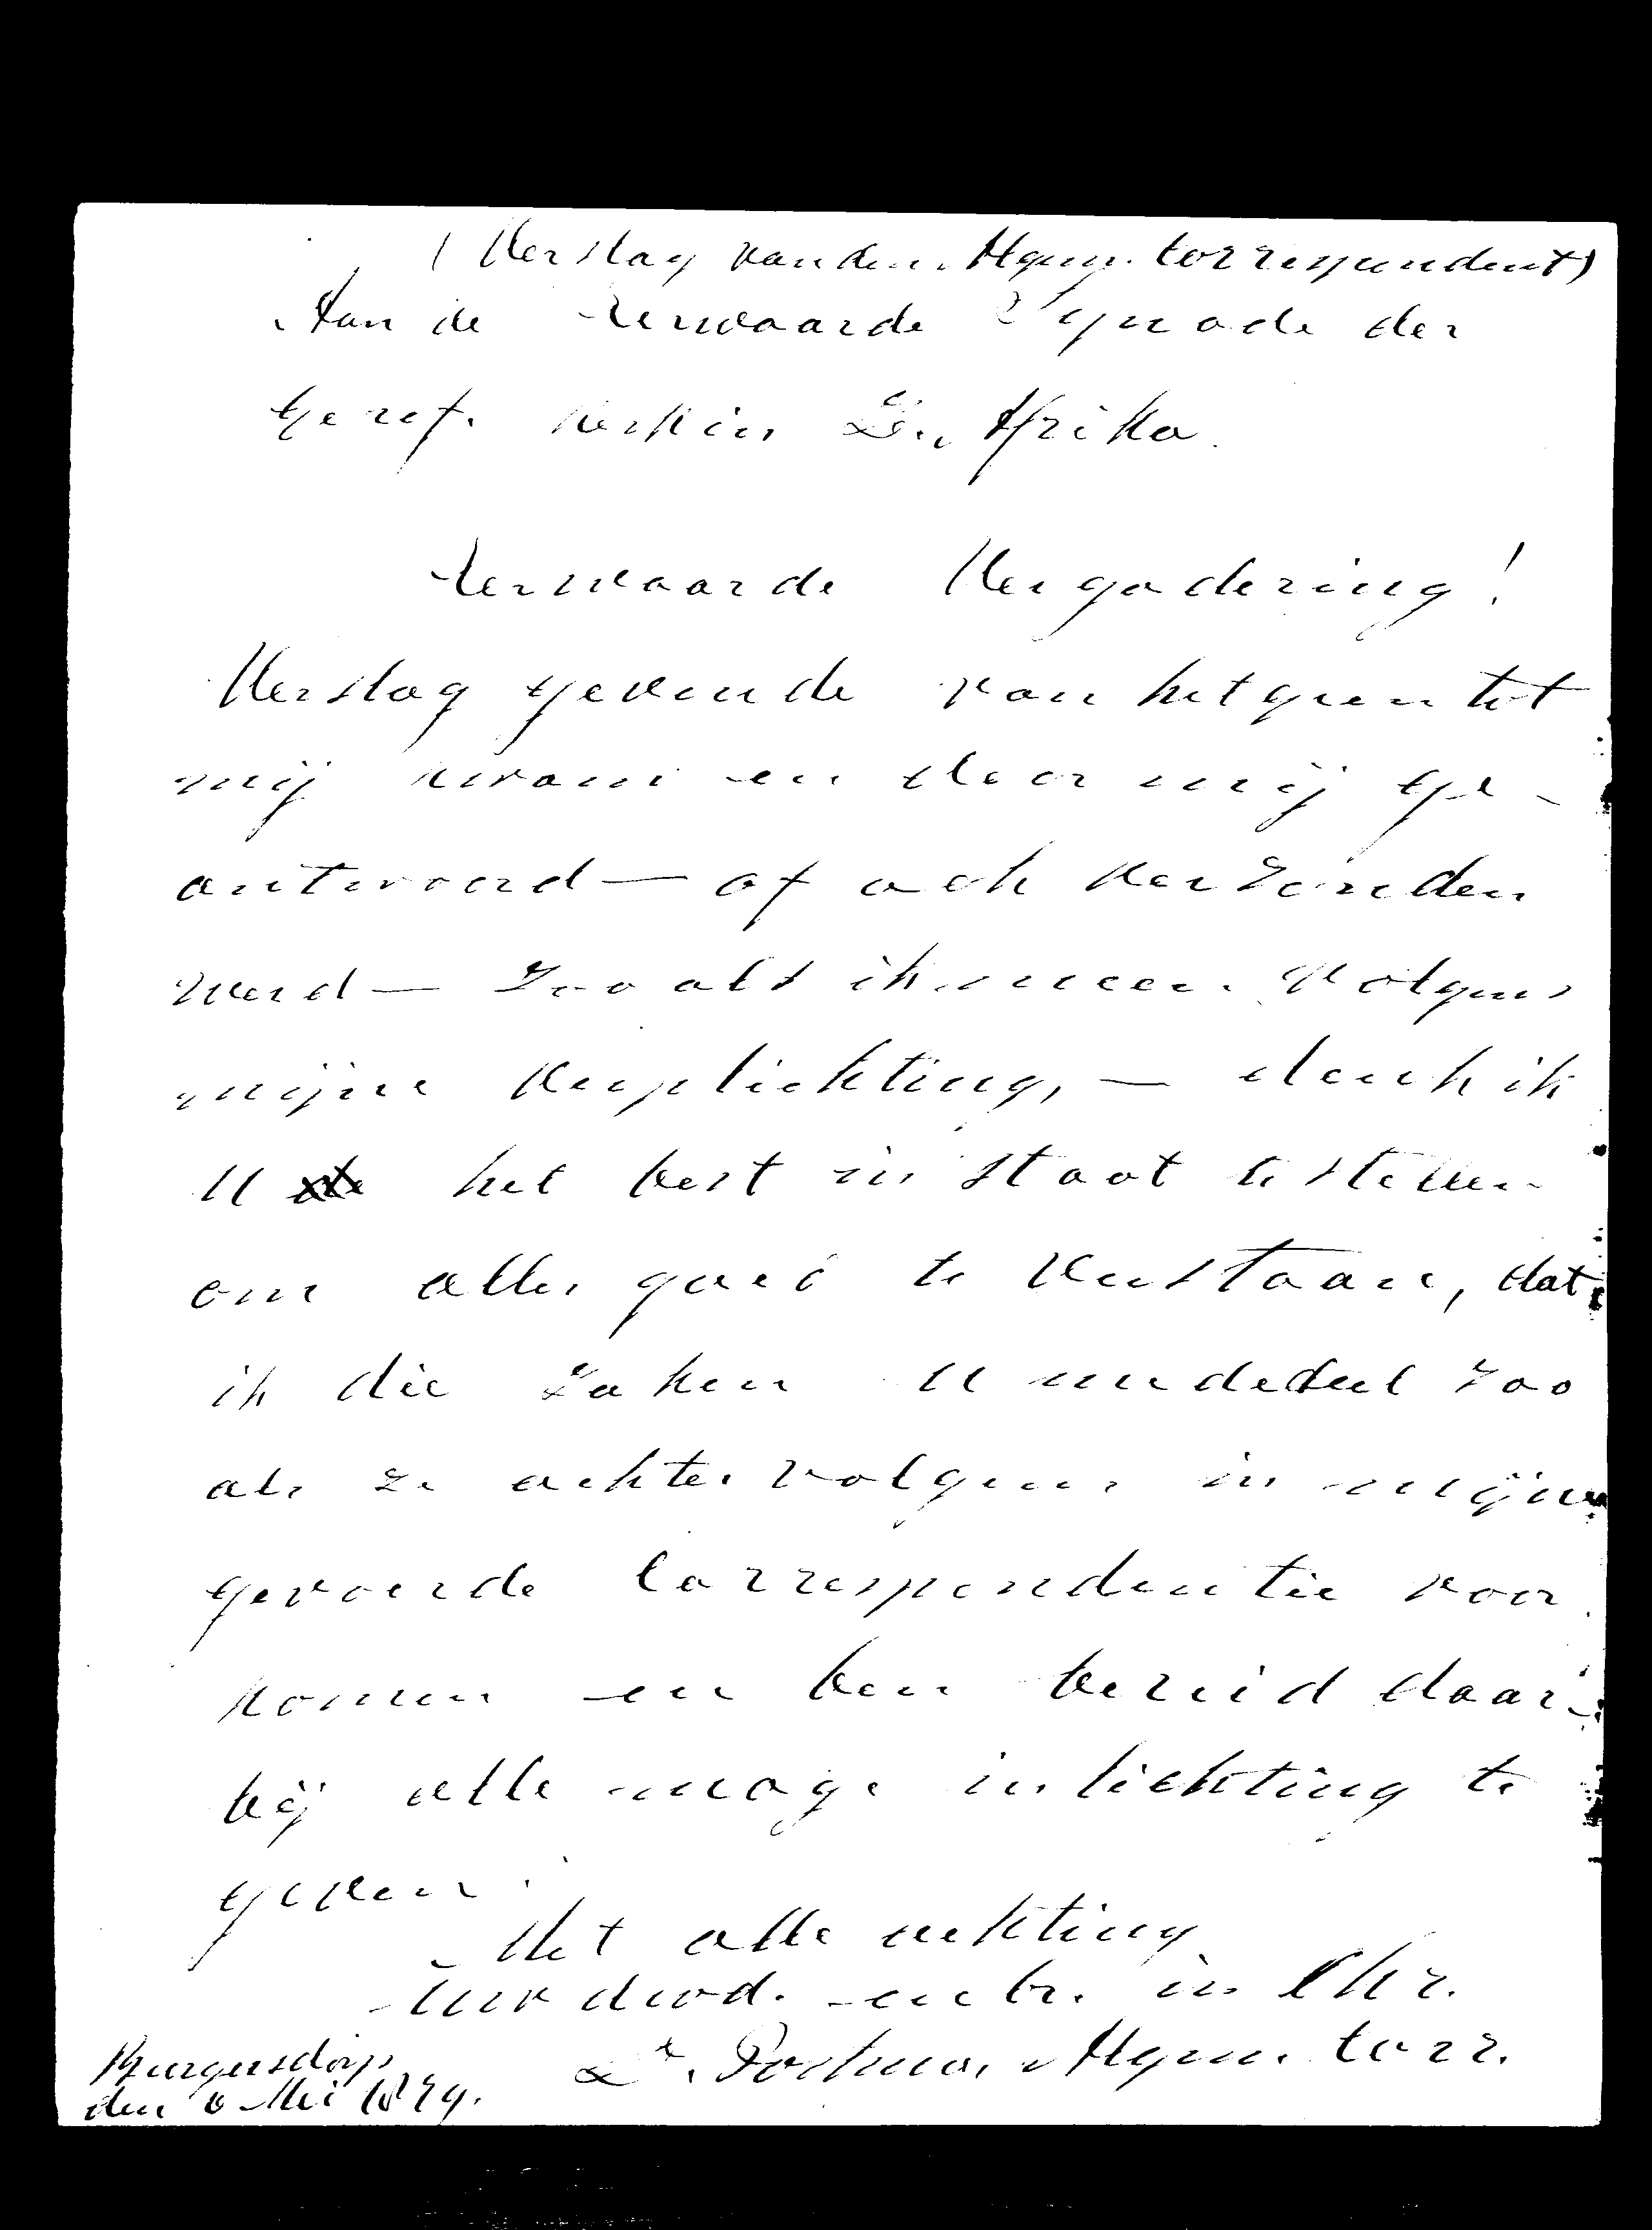 (Verslag van den Algem. Correspondent)
Aan de Eerwaarde Synode der
Geref. Kerk in Z. Afrika.
Eerwaarde Vergadering!
Verslag gevende van hetgeen tot
mij kwam en door mij ge-
antwoord — of ook verzonden
werd — zoo als ik meen volgens
mijne verplichting, — denk ik
U het best in staat te stellen
om alles goed te verstaan, dat
ik die zaken U mededeel zoo
als ze achtervolgens in mijne
gevoerde Correspondentie voor
komen en ben bereid daar-
bij alle moge inlichting te
geven.
Met alle achting
Uw dwd. en br. in Chr.
Ds. Postma, Algem. Corr.
Burgersdorp
den 6 Mei 1879.